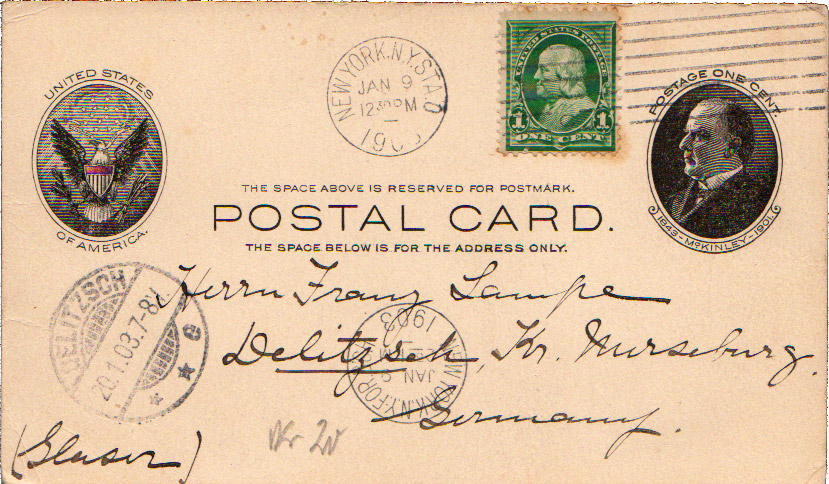 NEW YORK, N.Y. STA. D
JAN 9
12 30 PM
UNITED STATES POSTAGE
1 1
ONE CENT
POSTAGE ONE CENT.
1843-McKINLEY-1901.
UNITED STATES
OF AMERICA.
THE SPACE ABOVE IS RESERVED FOR POSTMARK.
POSTAL CARD.
THE SPACE BELOW IS FOR THE ADDRESS ONLY.
Herrn Franz Lampe
Delitzsch, Kr. Merseburg.
Germany.
DELITZSCH
20.1.03.7-8V
* * e
NEW YORK, N.Y. FOR
JAN 9
1903